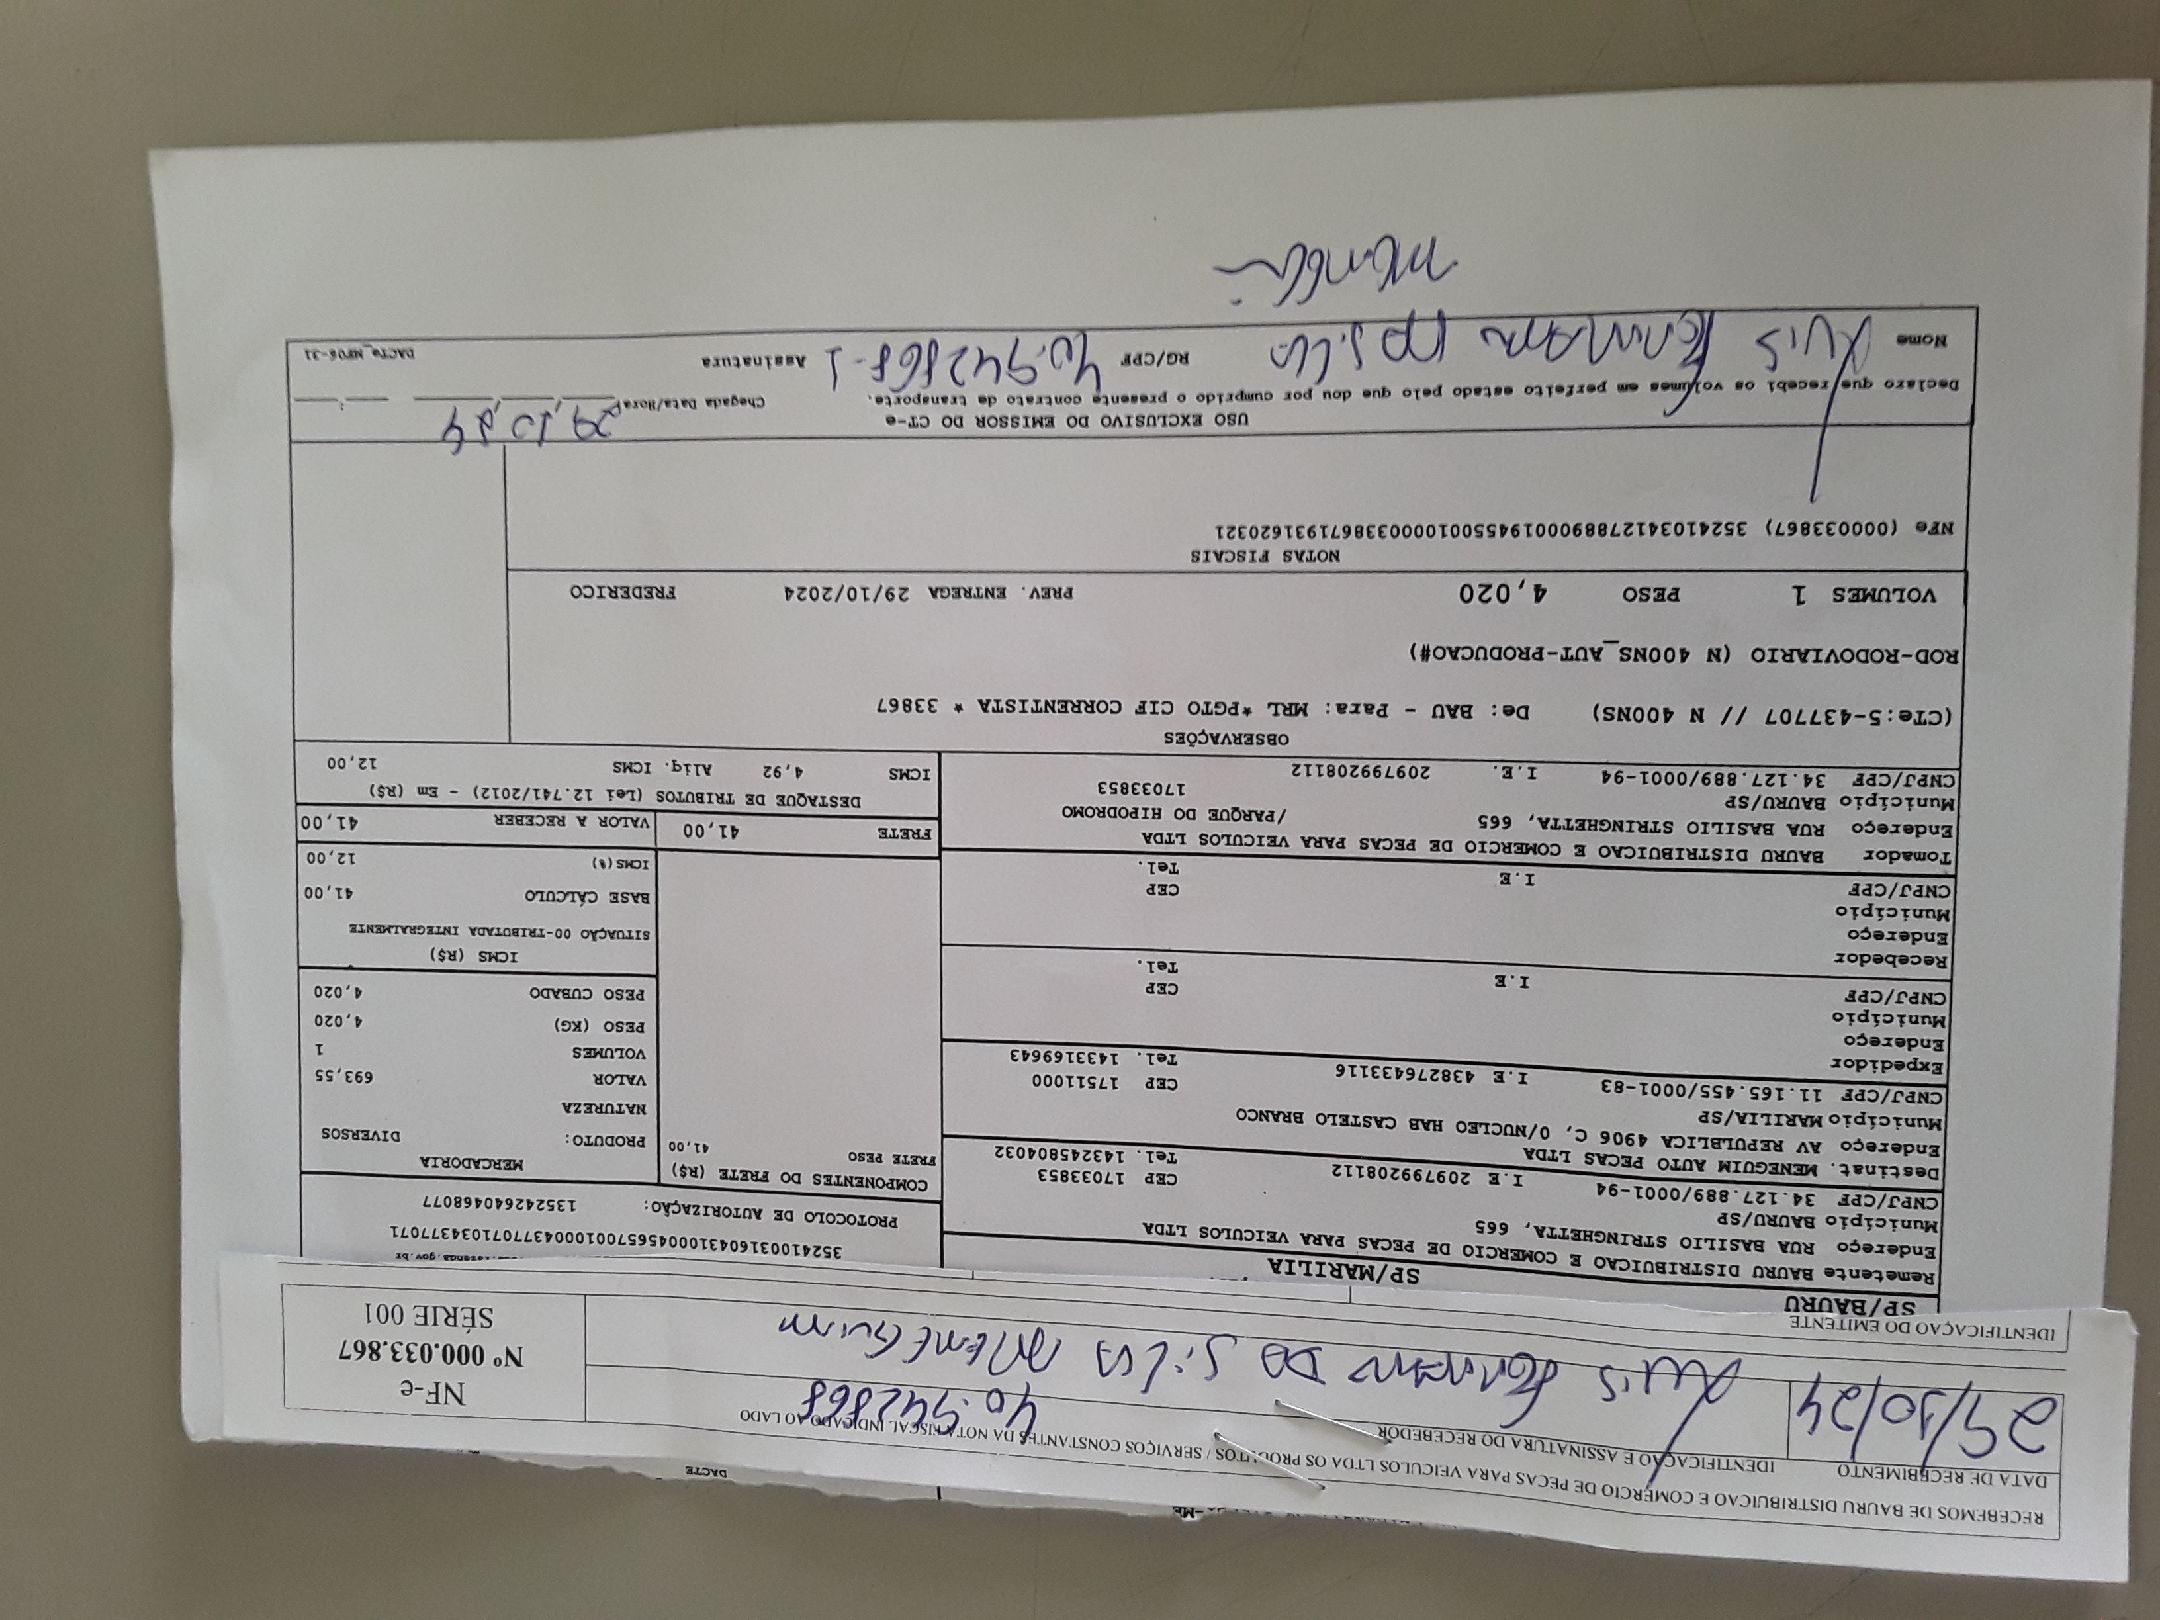 RECEBEMOS DE BAURU DISTRIBUICAO E COMERCIO DE PECAS PARA VEICULOS LTDA OS PRODUTOS / SERVIÇOS CONSTANTES DA NOTA FISCAL INDICADO AO LADO
DATA DE RECEBIMENTO
29/10/24
IDENTIFICAÇAO E ASSINATURA DO RECEBEDOR
40.942868
Luis Fernando da Silva Meneguim
NF-e
Nº 000.033.867
SÉRIE 001
DACTE
IDENTIFICAÇAO DO EMITENTE
SP/BAURU
SP/MARILIA
Remetente BAURU DISTRIBUICAO E COMERCIO DE PECAS PARA VEICULOS LTDA
Endereço RUA BASILIO STRINGHETTA, 665
Município BAURU/SP CEP 17033853
CNPJ/CPF 34.127.889/0001-94 I.E 209799208112 Tel. 143245804032
Destinat. MENEGUIM AUTO PECAS LTDA
Endereço AV REPULBLICA 4906 C, 0/NUCLEO HAB CASTELO BRANCO
Município MARILIA/SP CEP 17511000
CNPJ/CPF 11.165.455/0001-83 I.E 438276433116 Tel. 1433169643
Expedidor
Endereço
Município CEP
CNPJ/CPF I.E Tel.
Recebedor
Endereço
Município CEP
CNPJ/CPF I.E Tel.
Tomador BAURU DISTRIBUICAO E COMERCIO DE PECAS PARA VEICULOS LTDA
Endereço RUA BASILIO STRINGHETTA, 665 /PARQUE DO HIPODROMO
Município BAURU/SP 17033853
CNPJ/CPF 34.127.889/0001-94 I.E. 209799208112
35241003160431000456570010004377071034377071
PROTOCOLO DE AUTORIZAÇÃO: 135242640468077
COMPONENTES DO FRETE (R$)
FRETE PESO 41,00
MERCADORIA
PRODUTO: DIVERSOS
NATUREZA
VALOR 693,55
VOLUMES 1
PESO (KG) 4,020
PESO CUBADO 4,020
ICMS (R$)
SITUAÇÃO 00-TRIBUTADA INTEGRALMENTE
BASE CÁLCULO 41,00
ICMS(%) 12,00
FRETE 41,00
VALOR A RECEBER 41,00
DESTAQUE DE TRIBUTOS (Lei 12.741/2012) - Em (R$)
ICMS 4,92 Aliq. ICMS 12,00
OBSERVAÇÕES
(CTe:5-437707 // N 400NS) De: BAU - Para: MRL *PGTO CIF CORRENTISTA * 33867
ROD-RODOVIARIO (N 400NS_AUT-PRODUCAO#)
VOLUMES 1 PESO 4,020 PREV. ENTREGA 29/10/2024 FREDERICO
NOTAS FISCAIS
NFe (000033867) 35241034127889000194550010000338671931620321
USO EXCLUSIVO DO EMISSOR DO CT-e
Declaro que recebi os volumes em perfeito estado pelo que dou por cumprido o presente contrato de transporte.
Chegada Data/Hora 29,10,24
Nome Luis Fernando da Silva RG/CPF 40.942868-1 Assinatura
DACTe_MP06-31